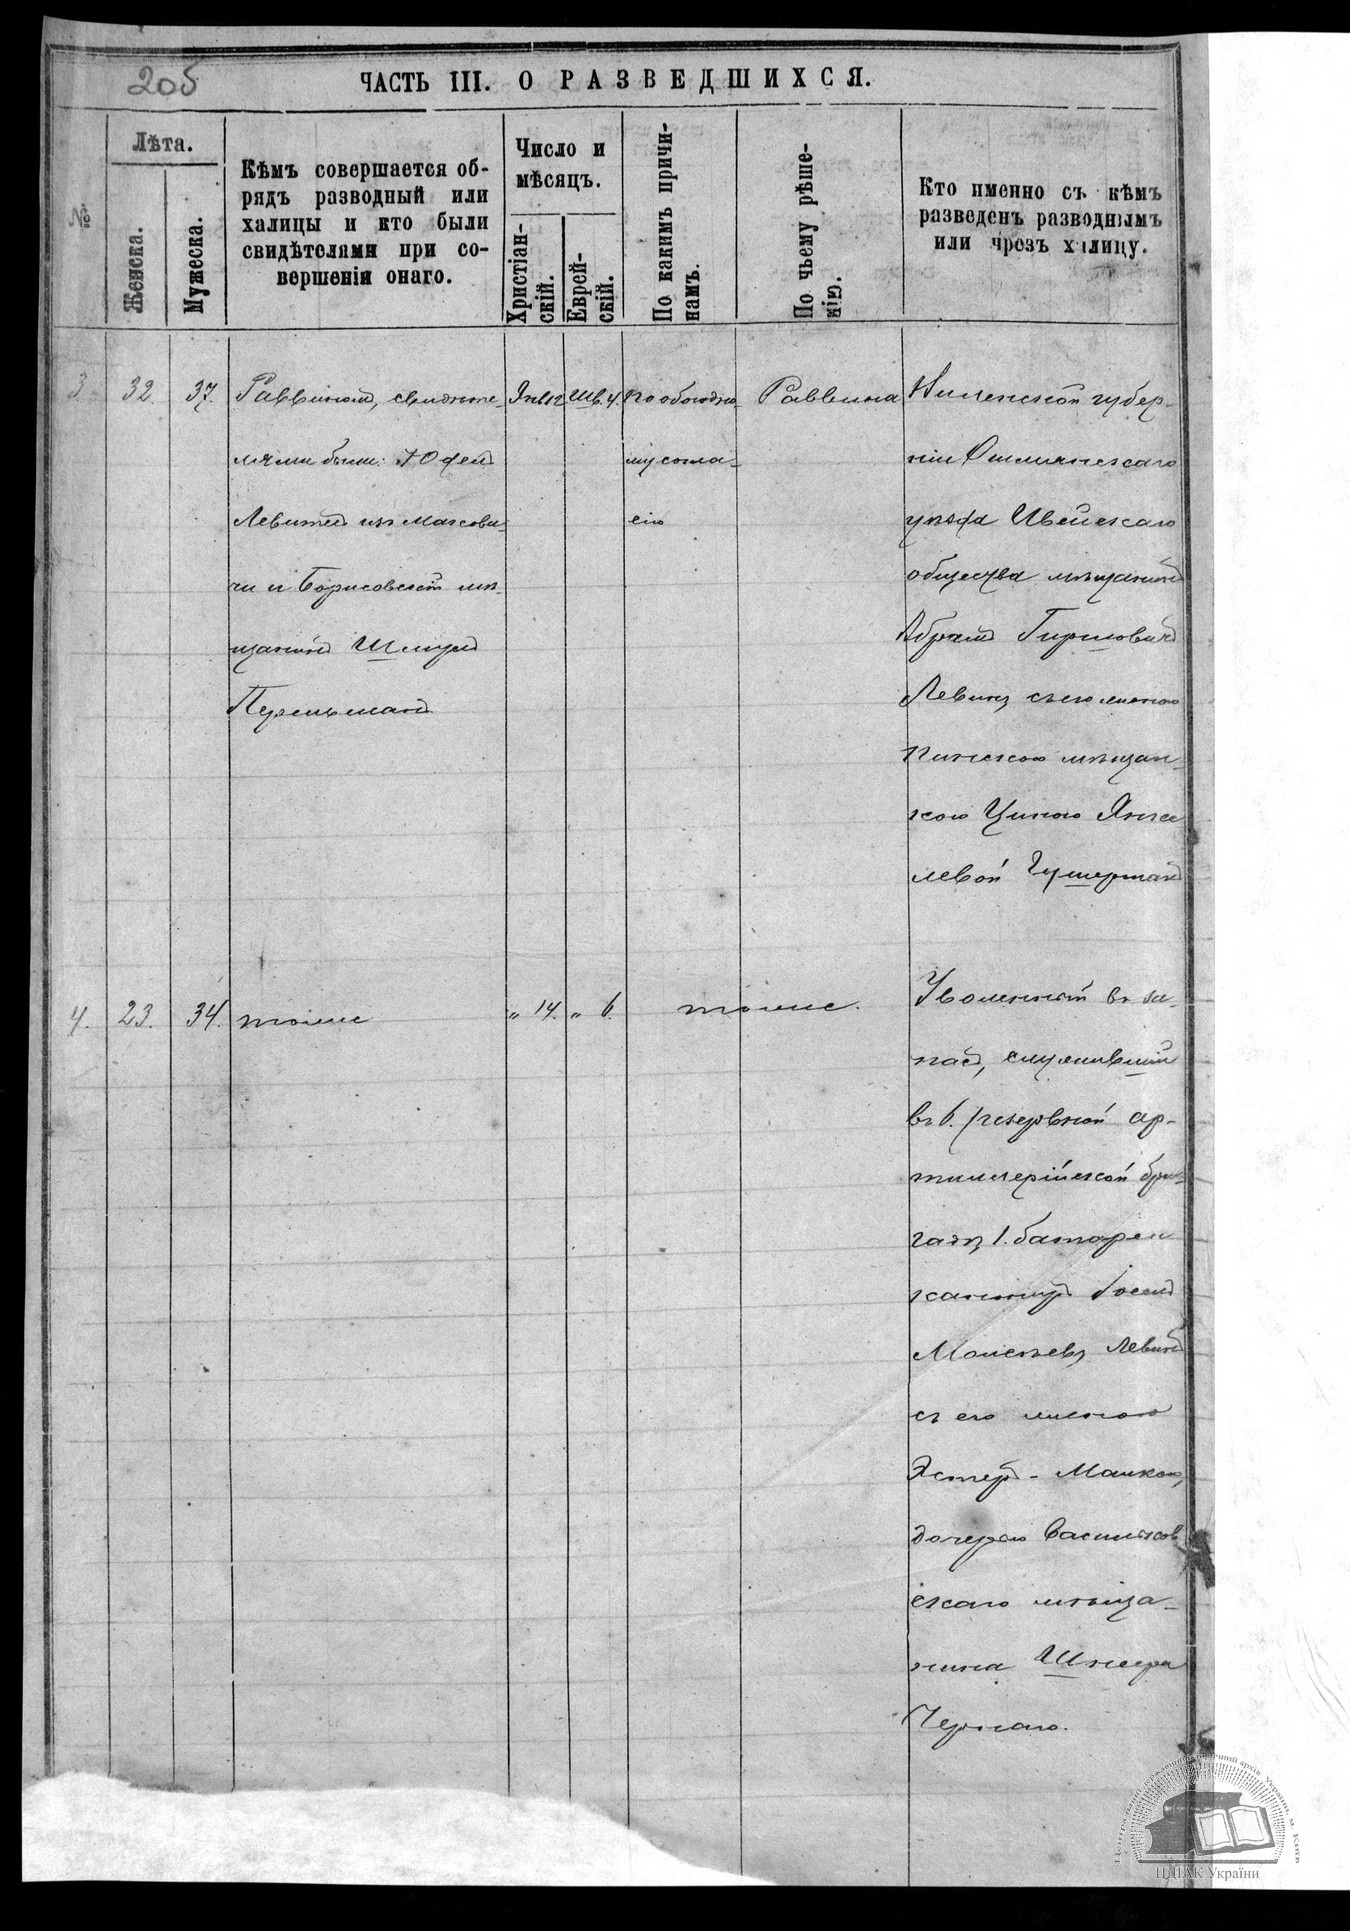 205
ЧАСТЬ III. О РАЗВЕДШИХСЯ.
№
Лѣта.
Женска.
Мужеска.
Кѣмъ совершается об-
рядъ разводный или
халицы и кто были
свидѣтелями при со-
вершеніи онаго.
Число и
мѣсяцъ.
Христіан-
скій.
Еврей-
скій.
По какимъ причи-
намъ.
По чьему рѣше-
нію.
Кто именно съ кѣмъ
разведенъ разводнымъ
или чрезъ халицу.
3.
32.
37.
Раввиномъ, свидѣте-
лями были:
Левитъ изъ
чи и Борисовскій мѣ-
щанинъ Шмуль
Перельманъ.
Янв. 12
Шв. 4.
По обоюдно-
му согла-
сію
Раввина
Виленской губер-
ніи Ошмянскаго
уѣзда Ивейскаго
общества мѣщанинъ
Абрамъ Гиршовичъ
Левинъ съ его женою
Пинскою мѣщан-
кою Циною Янке
левой
4.
23.
34.
тоже
" 14.
" 6.
тоже.
Уволенный въ за-
пасъ, служившій
въ 6. резервной ар-
тиллерійской бри-
гады 1. батареи
канониръ Іосель
Моисеевъ Левинъ
съ его женою
Эстеръ - Малкою,
дочерью Васильков
скаго мѣща-
нина Шнеера
Чернаго.
Центральний державний історичний архів України, м. Київ
ЦДІАК України